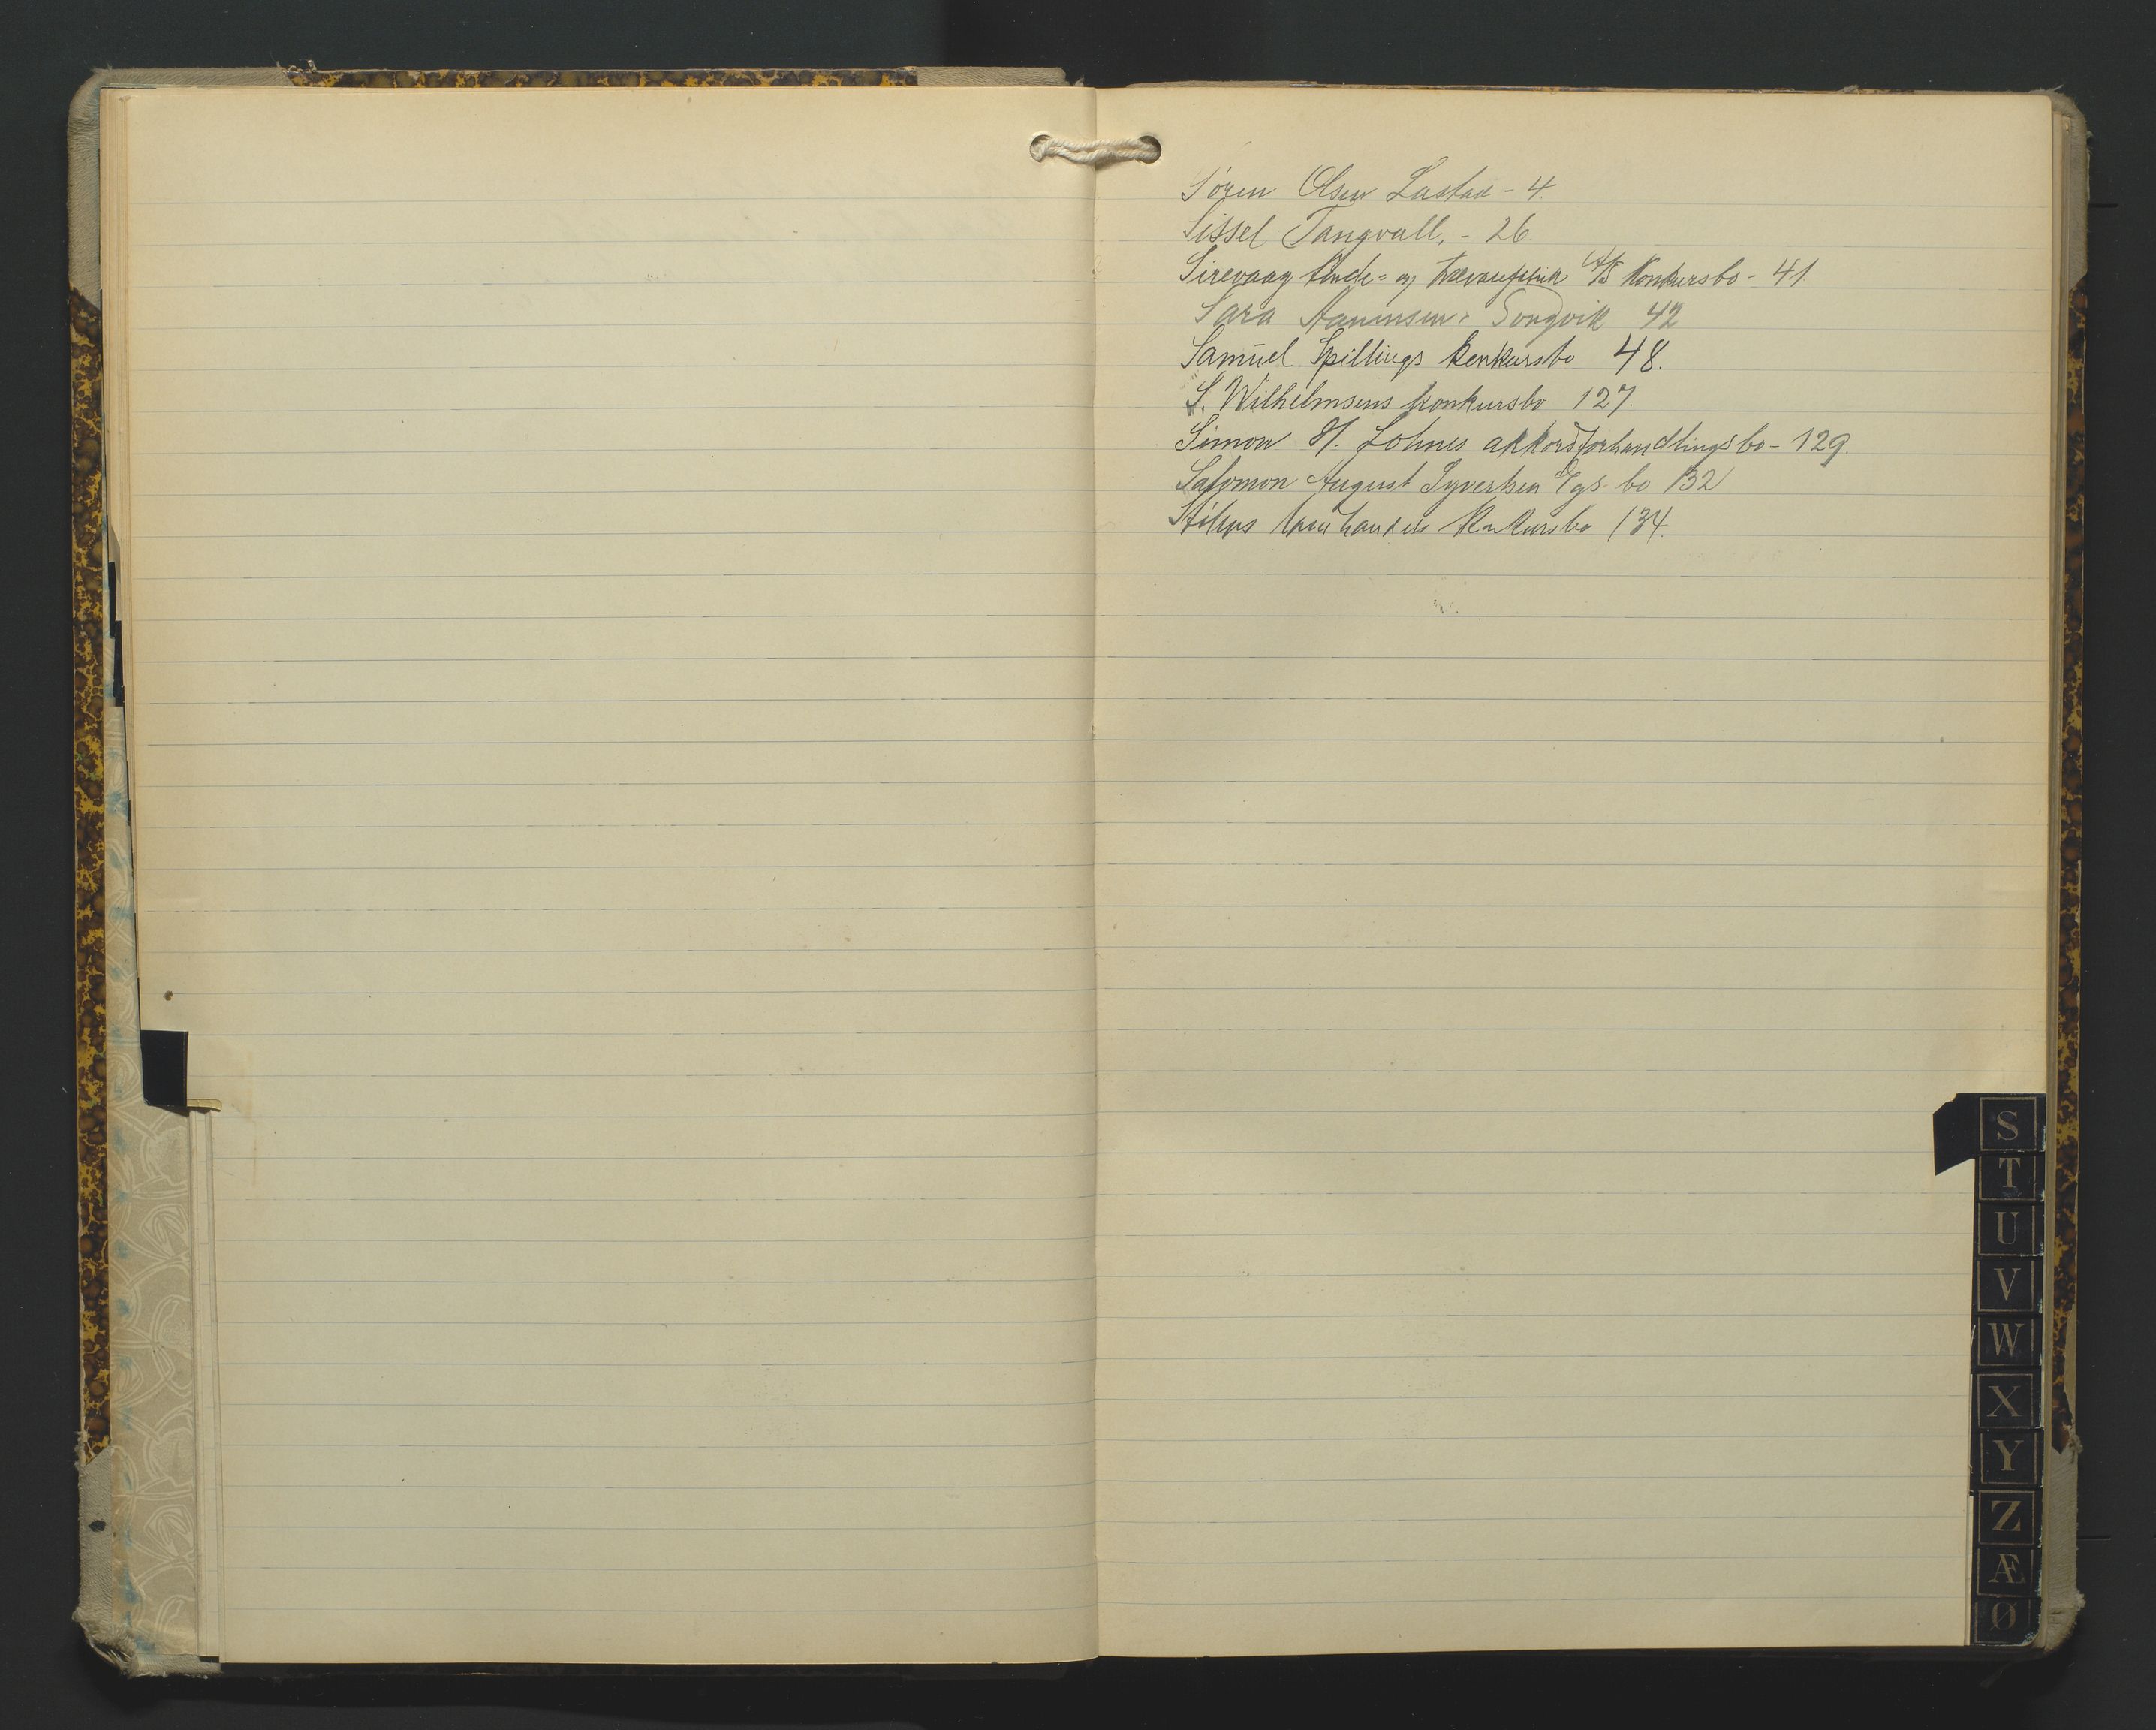 Søren Olsen Lastad - 4.
Sissel Tangvall, - 26.
Sirevaag tønde= og trævarefabrik A/S Konkursbo - 41.
Sara Aanensen, Songvik 42
Samuel Spillings konkursbo 48.
S. Wilhelmsens konkursbo 127.
Simon H. Lohnes akkordforhandlingsbo - 129.
Salomon August Syvertsen bo 132
konkursbo 134.
S
T
U
V
W
X
Y
Z
Æ
Ø